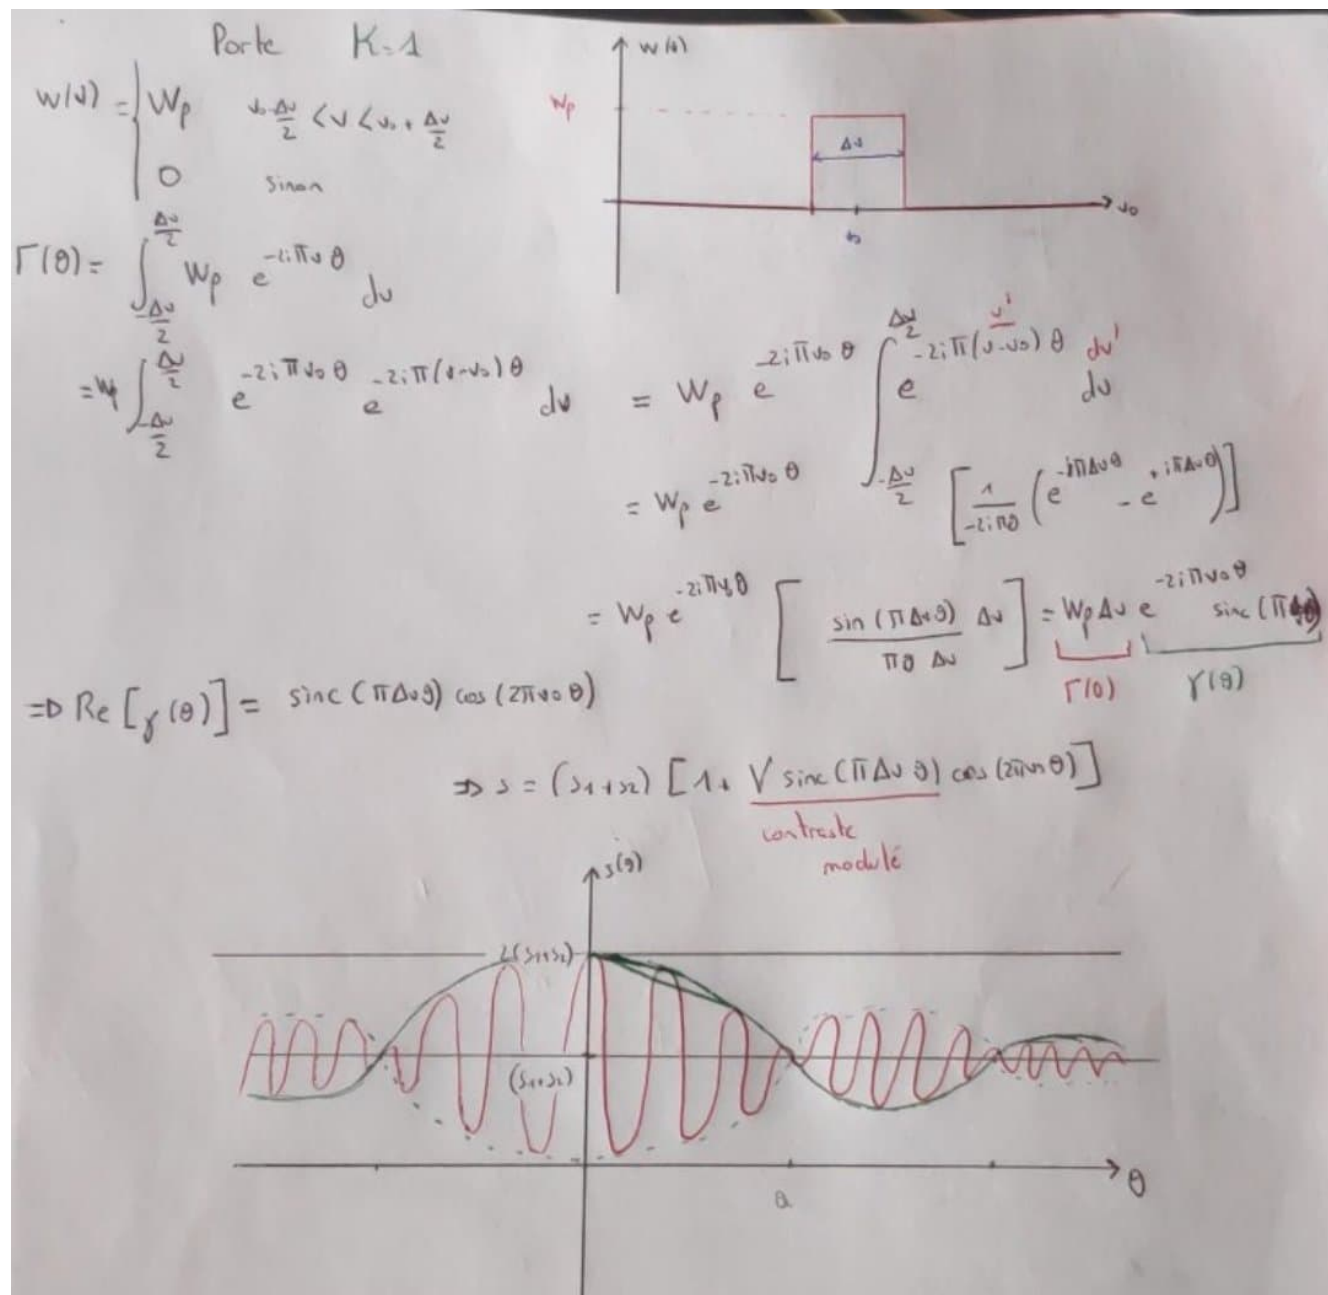 Porte K=1
W(ν) = { Wp ν₀-Δν/2 < ν < ν₀+Δν/2
0 sinon
W(ν)
Wp
Δν
ν₀
Γ(θ) = ∫_{-Δν/2}^{Δν/2} Wp e^{-2iπνθ} dν
= Wp ∫_{-Δν/2}^{Δν/2} e^{-2iπν₀θ} e^{-2iπ(ν-ν₀)θ} dν = Wp e^{-2iπν₀θ} ∫_{-Δν/2}^{Δν/2} e^{-2iπ(ν-ν₀)θ} dν
ν' dν'
= Wp e^{-2iπν₀θ} [1/(-2iπθ) (e^{-iπΔνθ} - e^{+iπΔνθ})]
= Wp e^{-2iπν₀θ} [sin(πΔνθ)/(πθ Δν) Δν] = WpΔν e^{-2iπν₀θ} sinc(πΔνθ)
Γ(0) γ(θ)
=> Re[γ(θ)] = sinc(πΔνθ) cos(2πν₀θ)
=> s = (s1+s2) [1 + V sinc(πΔνθ) cos(2πν₀θ)]
contraste
modulé
s(θ)
2(s1+s2)
(s1+s2)
θ